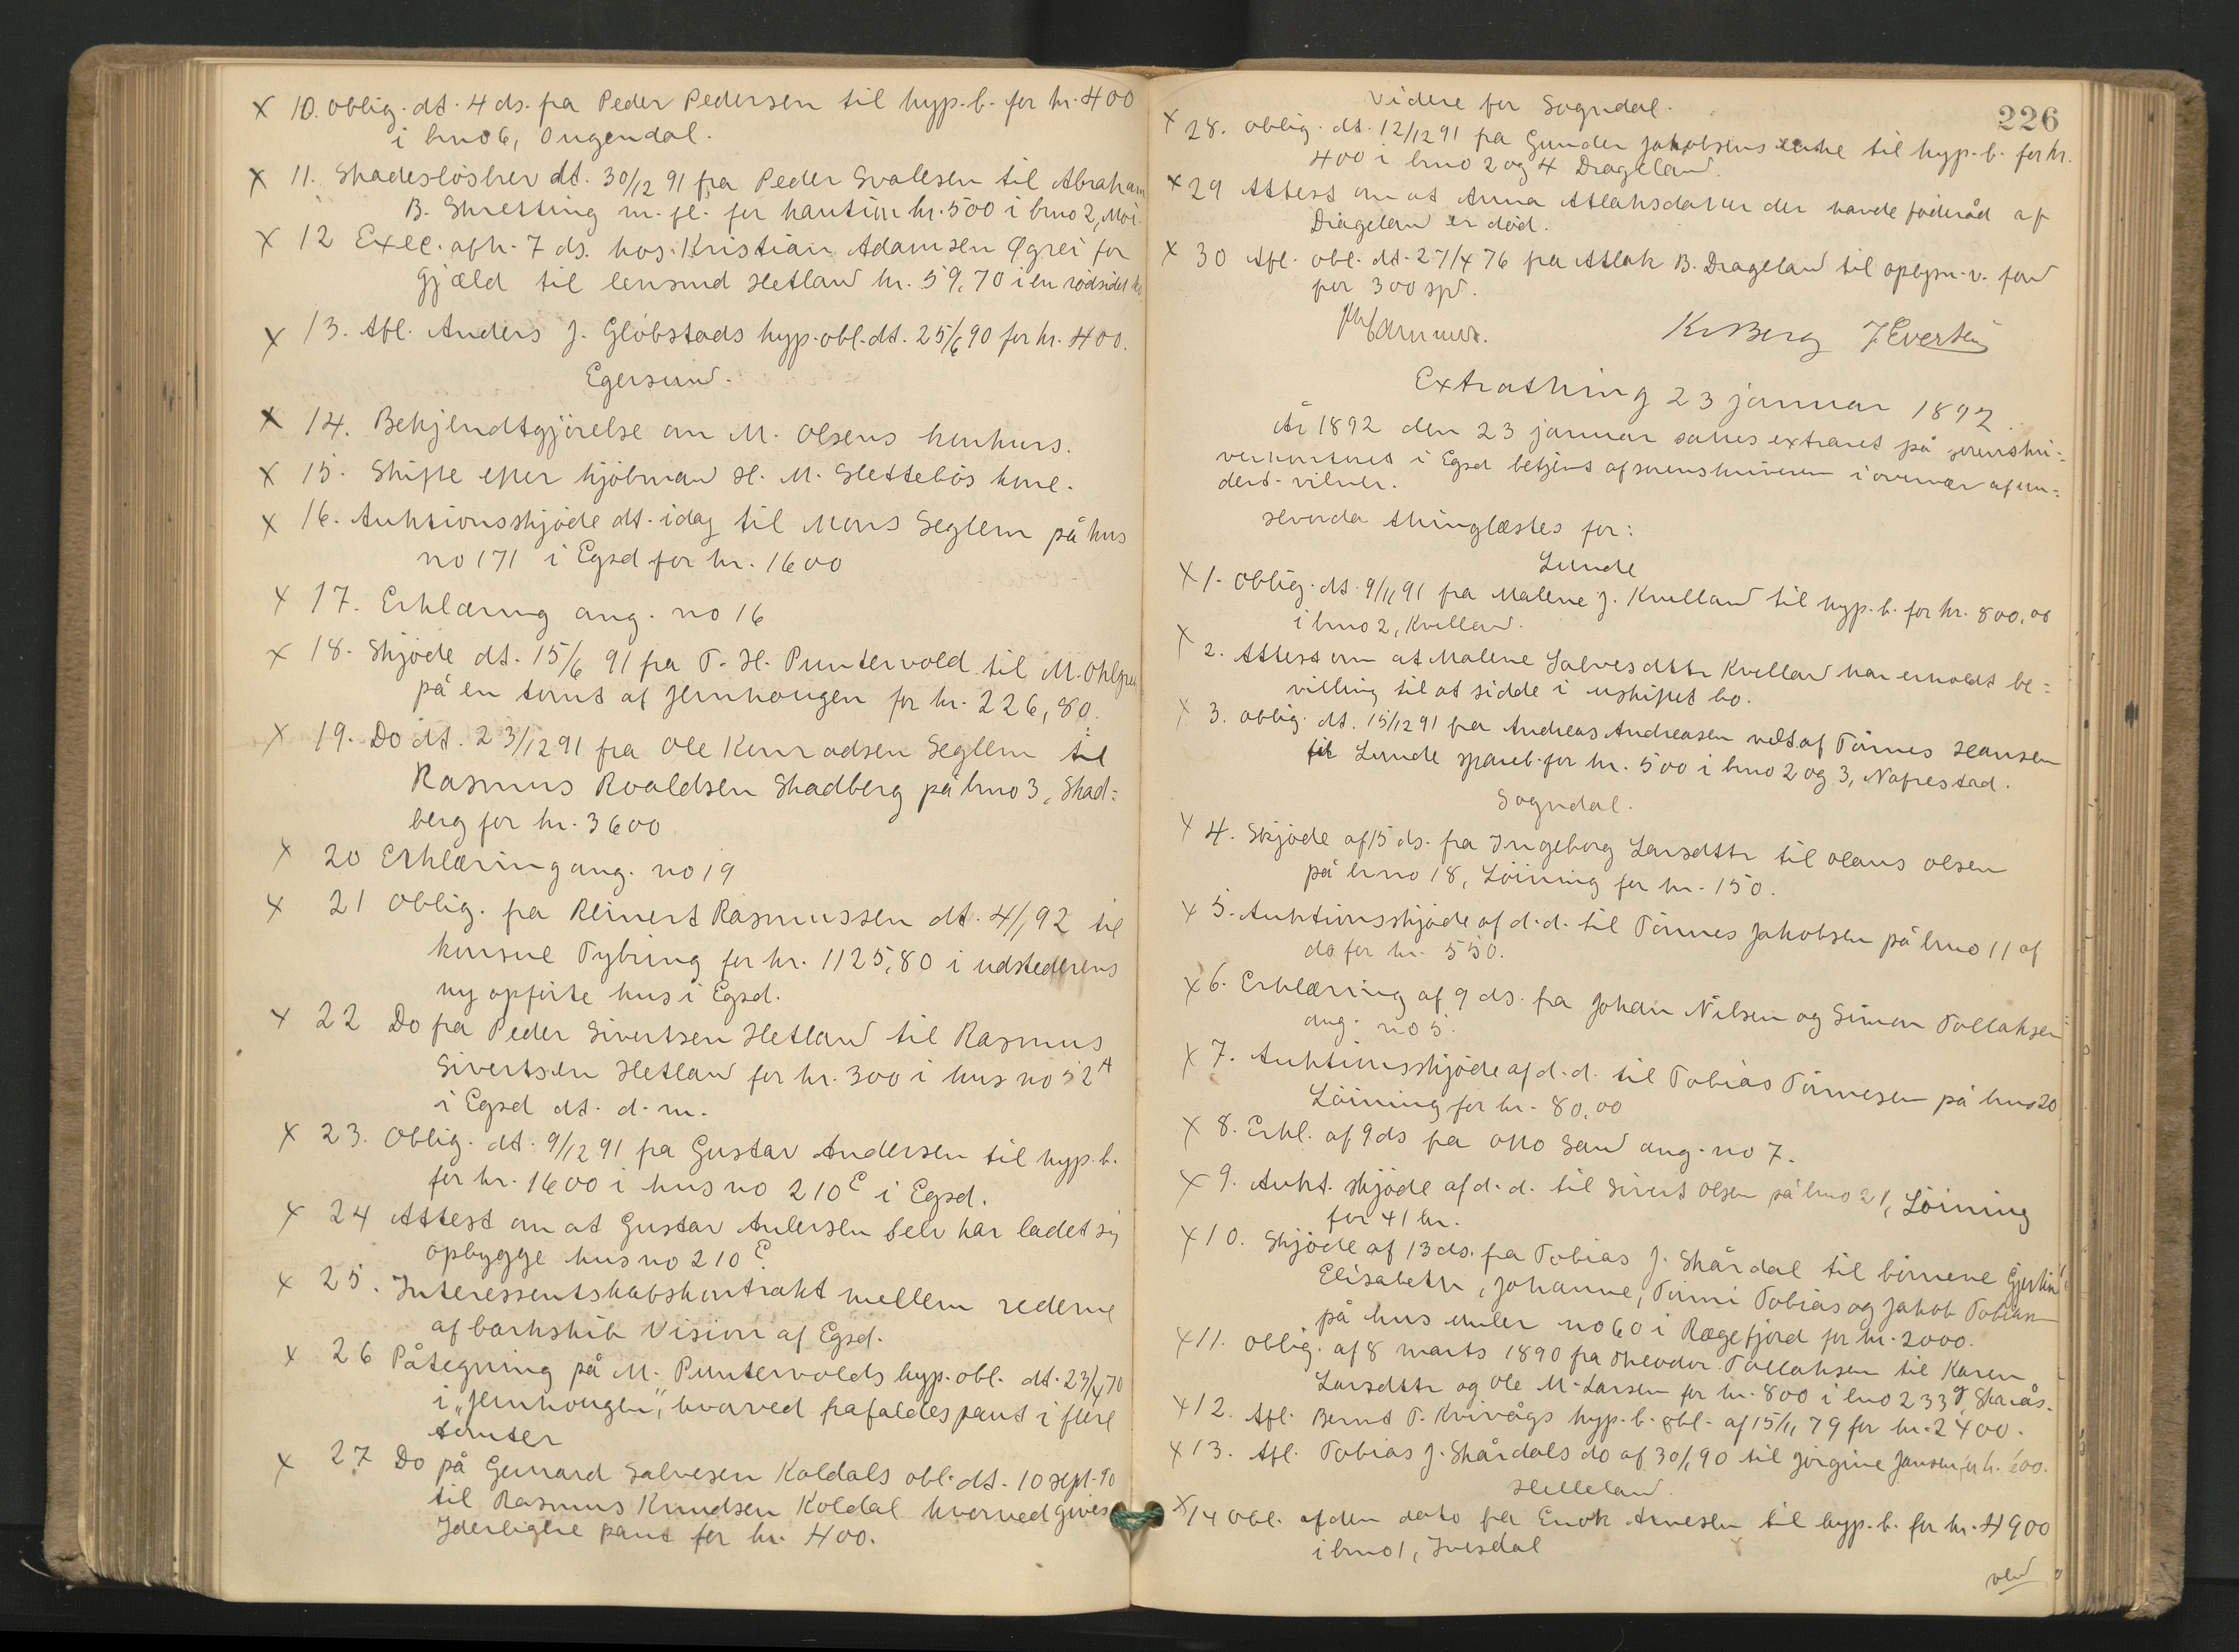 x 10. Oblig. dt. 4 ds. fra Peder Pedersen til hyp.b. for kr. 400
i brno 6, Ougendal.
x 11. Skadeslösbrev dt. 30/12 91 fra Peder Svalesen til Abraham
B. Skretting m. fl. for kaution kr. 500 i brno 2, Moi.
x 12 Exec. afh. 7 ds. hos Kristian Adamsen Øgrei for
gjæld til lensmd Hetland kr. 59,70 i en rödsidet
x 13. Afl. Anders J. Glöbstads hyp. obl. dt. 25/6 90 for kr. 400.
Egersund.
x 14. Bekjendtgjörelse om M. Olsens konkurs.
x 15. Skifte efter kjöbmand H. M. Slettebös kone.
x 16. Auktionsskjöde dt. idag til Mons Seglem på hus
no 171 i Egsd for kr. 1600
x 17. Erklæring ang. no 16
x 18. Skjöde dt. 15/6 91 fra T. H. Puntervold til M. Ohlgren
på en tomt af Jernhougen for kr. 226,80.
x 19. Do dt. 23/12 91 fra Ole Konradsen Seglem til
Rasmus Roaldsen Skadberg på brno 3, Skad=
berg for kr. 3600
x 20 Erklæring ang. no 19
x 21 Oblig. fra Reinert Rasmussen dt. 4/1 92 til
konsul Tybring for kr. 1125,80 i udstederens
ny opförte hus i Egsd.
x 22 Do fra Peder Sivertsen Hetland til Rasmus
Sivertsen Hetland for kr. 300 i hus no 52 A
i Egsd dt. d. m.
x 23. Oblig. dt. 9/12 91 fra Gustav Andersen til hyp.b.
for kr. 1600 i hus no 210 E i Egsd.
x 24 Attest om at Gustav Andersen selv har ladet sig
opbygge hus no 210 E.
x 25. Interessentskabskontrakt mellem rederne
af barkskib Vision af Egsd.
x 26 Påtegning på M. Puntervolds hyp. obl. dt. 23/4 70
i "Jernhougen", hvorved frafaldes pant i flere
tomter
x 27 Do på Gerhard Salvesen Koldals obl. dt. 10 sept. 90
til Rasmus Knudsen Koldal hvorved gives
yderligere pant for kr. 400.
226
Videre for Sogndal.
x 28. Oblig. dt. 12/12 91 fra Gunder Jakobsens enke til hyp.b. for kr.
400 i brno 2 og 4 Drageland.
x 29 Attest om at Anna Atlaksdatter der havde föderåd af
Drageland er död.
x 30 Afl. obl. dt. 27/4 76 fra Atlak B. Drageland til oplysn.v. fond
for 300 spd.
Kr Berg J Evertsen
Extrathing 23 januar 1892.
År 1892 den 23 januar sattes extraret på sorenskri=
verkontoret i Egsd betjent af sorenskriveren i overvær af un=
dert. vitner.
Hvorda thinglæstes for:
Lunde
x 1. Oblig. dt. 9/11 91 fra Malene J. Kvelland til hyp.b. for kr. 800,00
i brno 2, Kvelland.
x 2. Attest om at Malene Salvesdttr Kvelland har erholdt be=
villing til at sidde i uskiftet bo.
x 3. Oblig. dt. 15/12 91 fra Andreas Andreasen vedt. af Tönnes Hansen
til Lunde spareb. for kr. 500 i brno 2 og 3, Nafrestad.
Sogndal.
x 4. Skjöde af 15 ds. fra Ingeborg Larsdttr til Olaus Olsen
på brno 18, Löining for kr. 150.
x 5. Auktionsskjöde af d. d. til Tönnes Jakobsen på brno 11 af
do for kr. 550.
x 6. Erklæring af 9 ds. fra Johan Nilsen og Simon Tollaksen
ang. no 5.
x 7. Auktionsskjöde af d. d. til Tobias Tönnesen på brno 20
Löining for kr. 80,00
x 8. Erkl. af 9 ds fra Otto Sand ang. no 7.
x 9. Aukt. skjöde af d. d. til Sivert Olsen på brno 21, Löining
for 41 kr.
x 10. Skjöde af 13 ds. fra Tobias J. Skårdal til börnene
Elisabeth, Johanne, Tonni Tobias og Jakob Tobias
på hus under no 60 i Rægefjord for kr. 2000.
x 11. Oblig. af 8 marts 1890 fra Theodor Tollaksen til Karen
Larsdttr og Ole M. Larsen for kr. 800 i lno 233 g, Skarås.
x 12. Afl. Bernt T. Kvivågs hyp.b. obl. af 15/11 79 for kr. 2400.
x 13. Afl. Tobias J. Skårdals do af 30/1 90 til Jörgine Jansen for kr. 600.
Helleland.
x 14 Obl. af den dato fra Enok Arnesen til hyp.b. for kr. 4900
i brno 1, Ivesdal